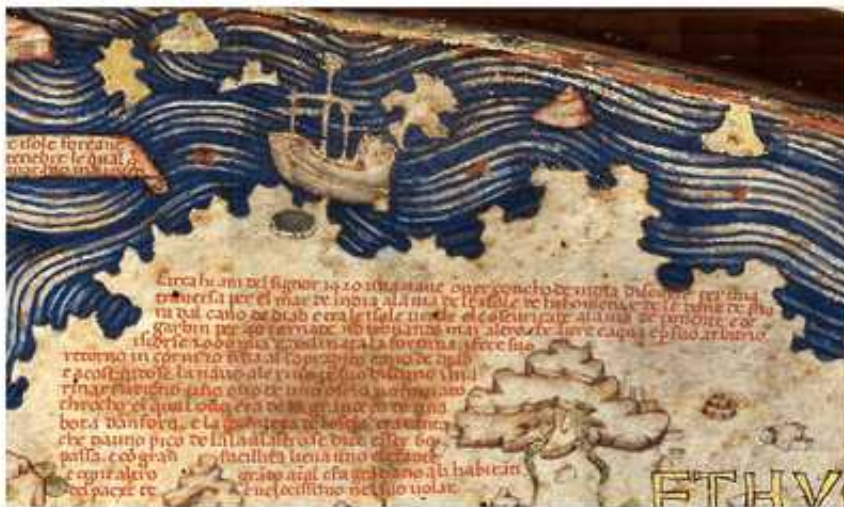 e isole sore
tenebre le qual
Circa hi ani del signor 1420 una naue ouer çoncho de india discorse per una
trauersa per el mar de india a la uia de le isole de hi homeni e de le done de fuo
ra dal cauo de diab e tra le isole uerde e le oscuritade a la uia de ponente e de
garbin per 40 çornade non trouando mai altro che aiere e aqua e p suo arbitrio
iscorse 2000 mia e declinata la fortuna i fece suo
retorno in çorni 70 fina al sopradito cauo de diab
e acostandose la naue a le riue p suo bisogno i ma
rinari uedeno uno ouo de uno oselo nominato
chrocho el qual ouo era de la grandeça de una
bota d anfora e la grandeça de l oselo era tanta
che da uno piço de l ala a l altro se dice esser 60
passa e cō gran facillita lieua uno elefante
e ogni altro grādo aīal e fa gran dāno a li habitāti
del paexe et e uelocissimo nel suo uolar
ETHYO